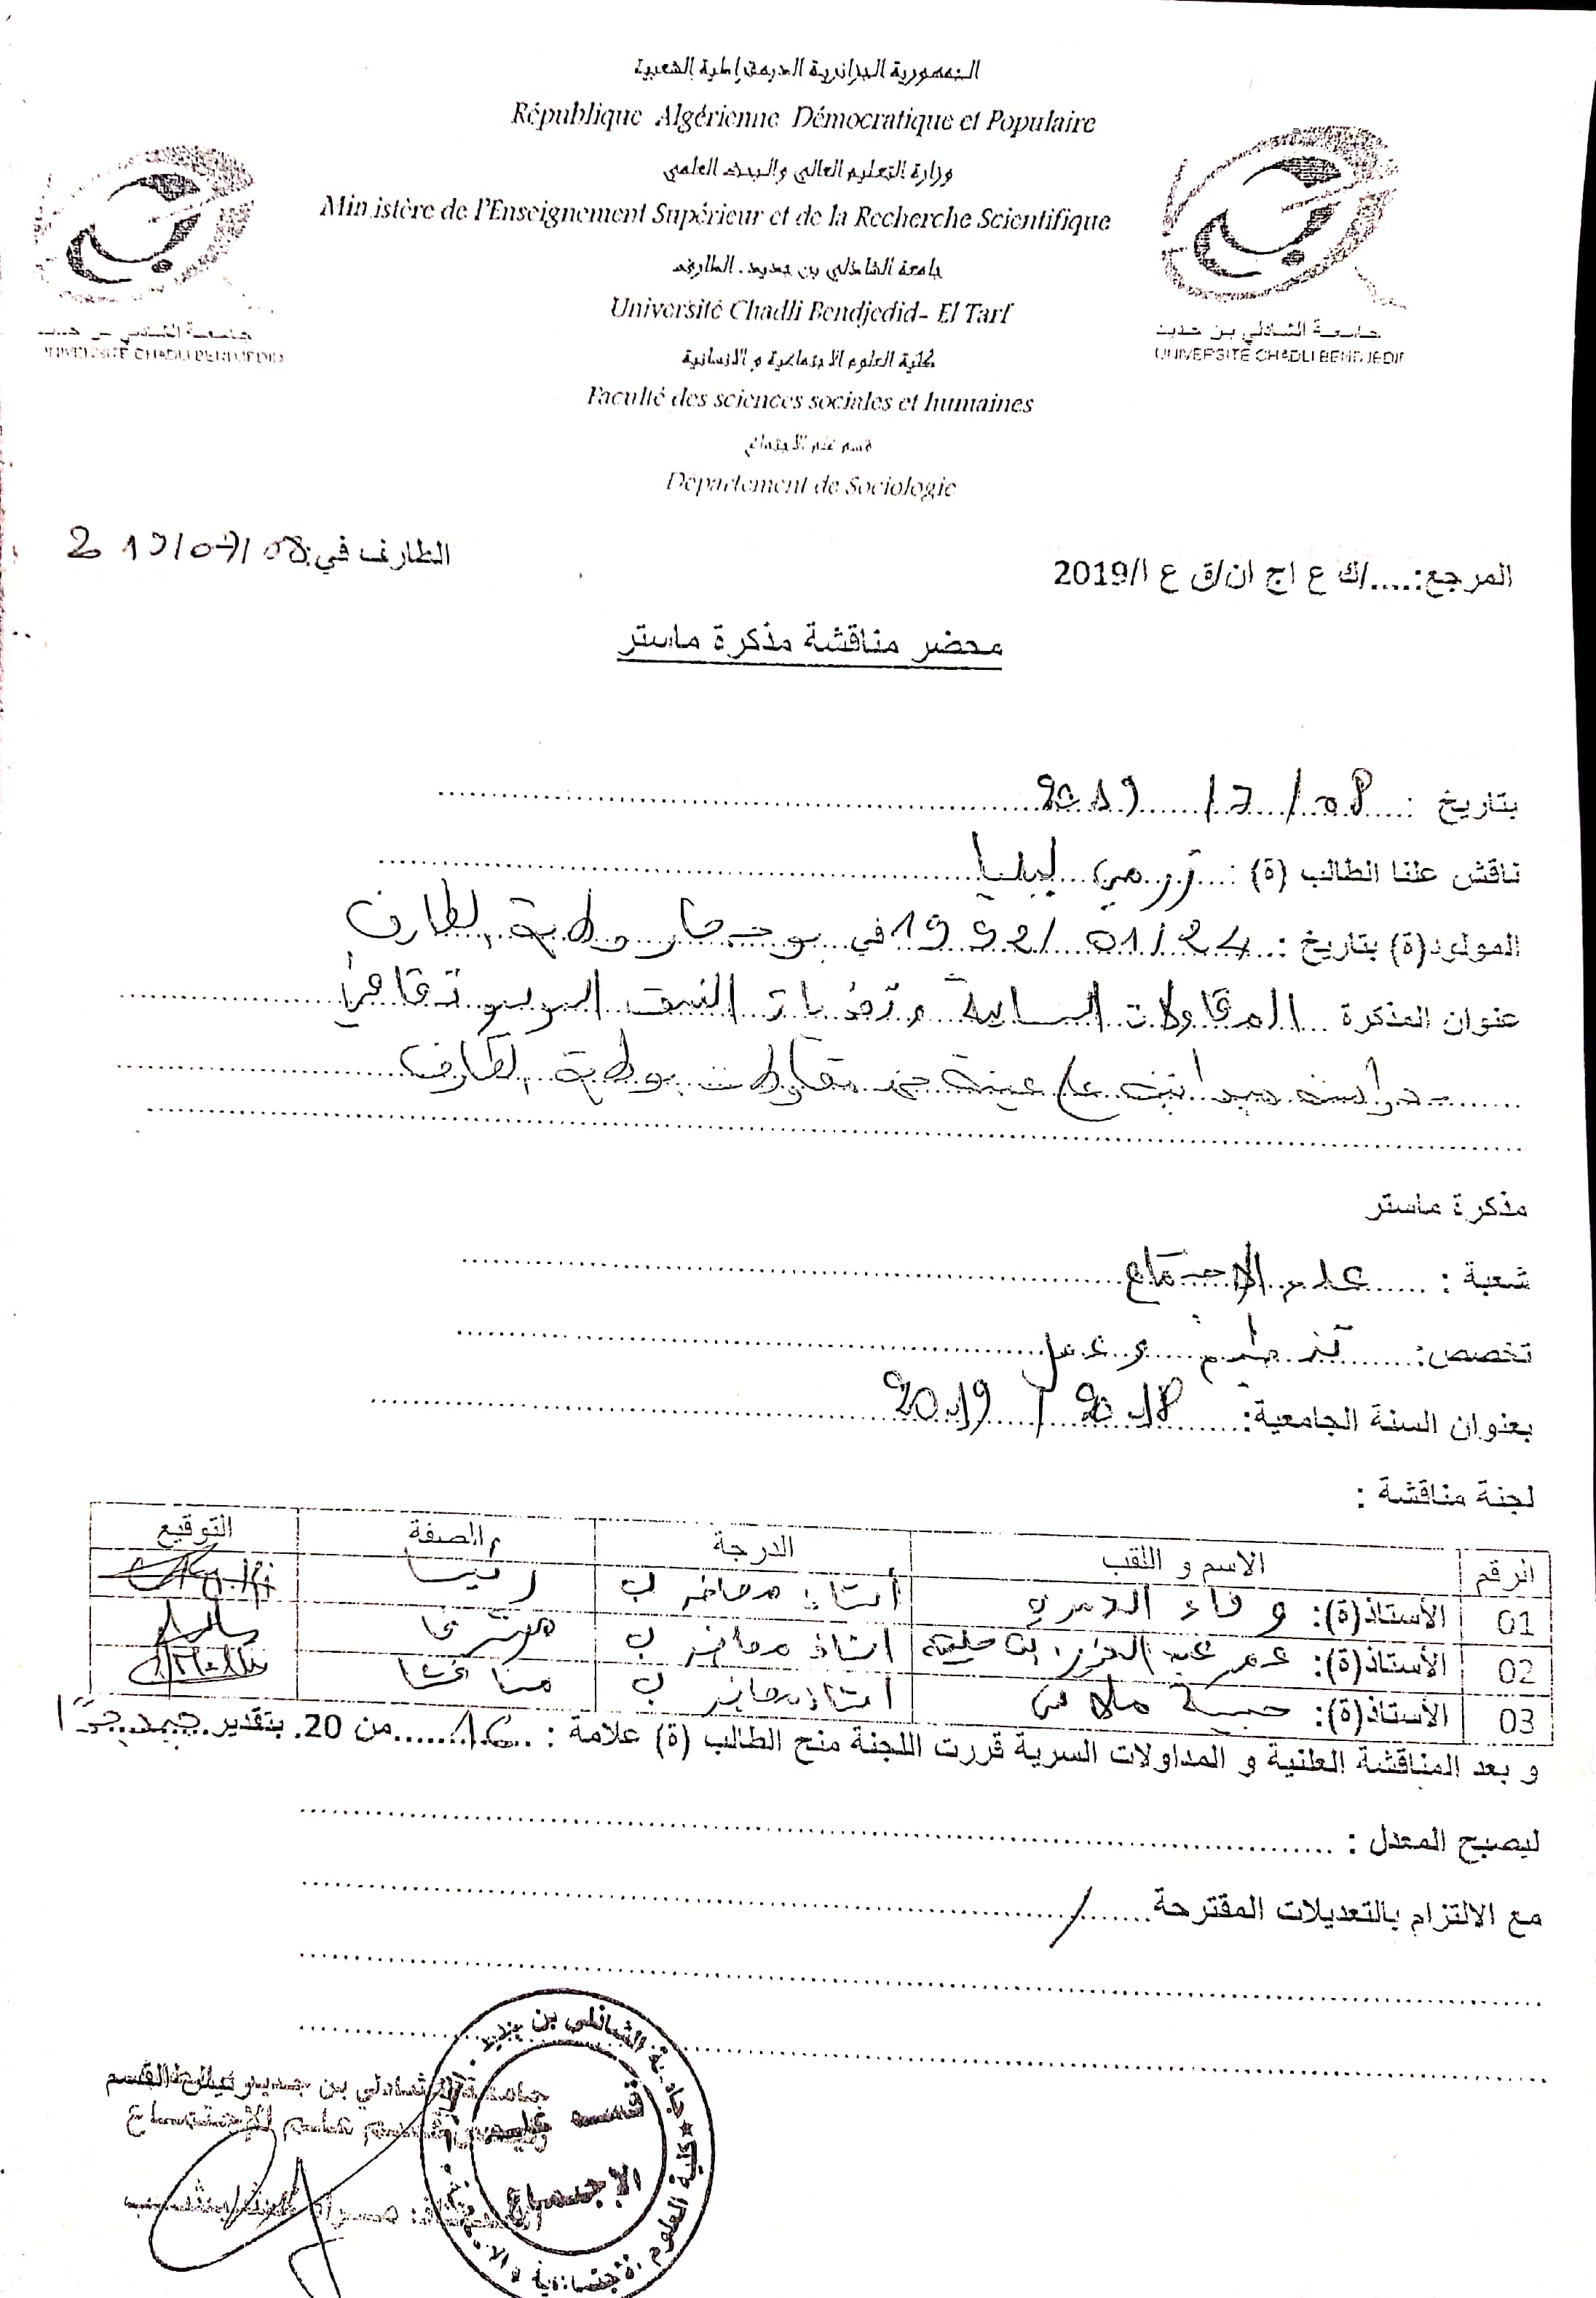 الجمهورية الجزائرية الديمقراطية الشعبية
République Algérienne Démocratique et Populaire
وزارة التعليم العالي والبحث العلمي
Ministère de l'Enseignement Supérieur et de la Recherche Scientifique
جامعة الشاذلي بن جديد. الطارف
Université Chadli Bendjedid- El Tarf
كلية العلوم الاجتماعية و الانسانية
Faculté des sciences sociales et humaines
قسم علم الاجتماع
Département de Sociologie
جامعة الشاذلي بن جديد
UNIVERSITÉ CHADLI BENDJEDID
جامعة الشاذلي بن جديد
UNIVERSITÉ CHADLI BENDJEDID
المرجع:...../ك ع اج ان/ق ع ا/2019
الطارف في: 08/07/219
محضر مناقشة مذكرة ماستر
بتاريخ : 08/7/2019
ناقش علنا الطالب (ة) : زرمي ليليا
المولود(ة) بتاريخ : 24/01/1992 في بوحجار ولاية الطارف
عنوان المذكرة المقاولات النسائية و تحديات النسق السوسيو ثقافي
- دراسة ميدانية على عينة من مقاولات بولاية الطارف
مذكرة ماستر
شعبة : علم الاجتماع
تخصص: تنظيم و عمل
بعنوان السنة الجامعية: 2018 / 2019
لجنة مناقشة :
الرقم الاسم و اللقب الدرجة الصفة التوقيع
01 الأستاذ(ة): وفاء أستاذ محاضر ب رئيسا
02 الأستاذ(ة): عمر عبد العزيز أستاذ محاضر ب مشرفا
03 الأستاذ(ة): ملاس أستاذ محاضر ب مناقشا
و بعد المناقشة العلنية و المداولات السرية قررت اللجنة منح الطالب (ة) علامة : 16 من 20. بتقدير جيد جدًا
ليصبح المعدل :
مع الالتزام بالتعديلات المقترحة /
رئيس القسم
جامعة الشاذلي بن جديد
رئيس قسم علم الاجتماع
الأستاذ: مراد
جامعة الشاذلي بن جديد
كلية العلوم الاجتماعية و
قسم علم
الاجتماع